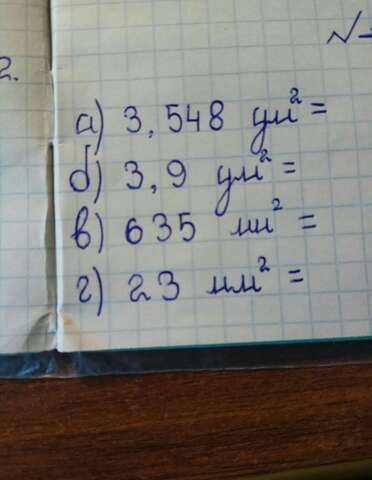 2.
а) 3,548 дм² =
б) 3,9 дм² =
в) 635 мм² =
г) 23 мм² =